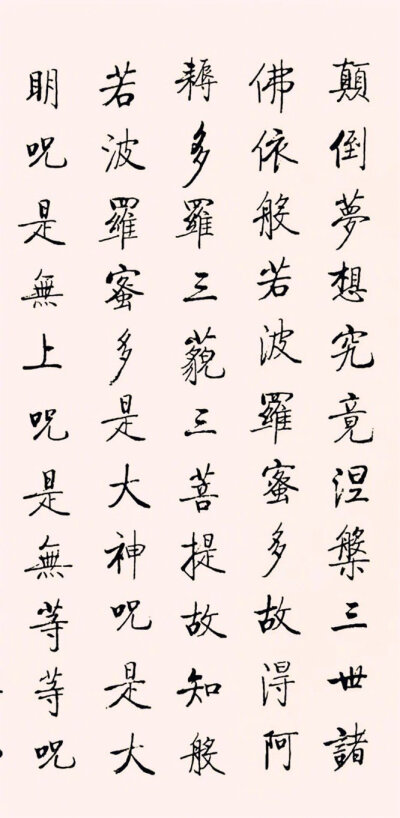 顛倒夢想究竟涅槃三世諸
佛依般若波羅蜜多故得阿
耨多羅三藐三菩提故知般
若波羅蜜多是大神咒是大
明咒是無上咒是無等等咒